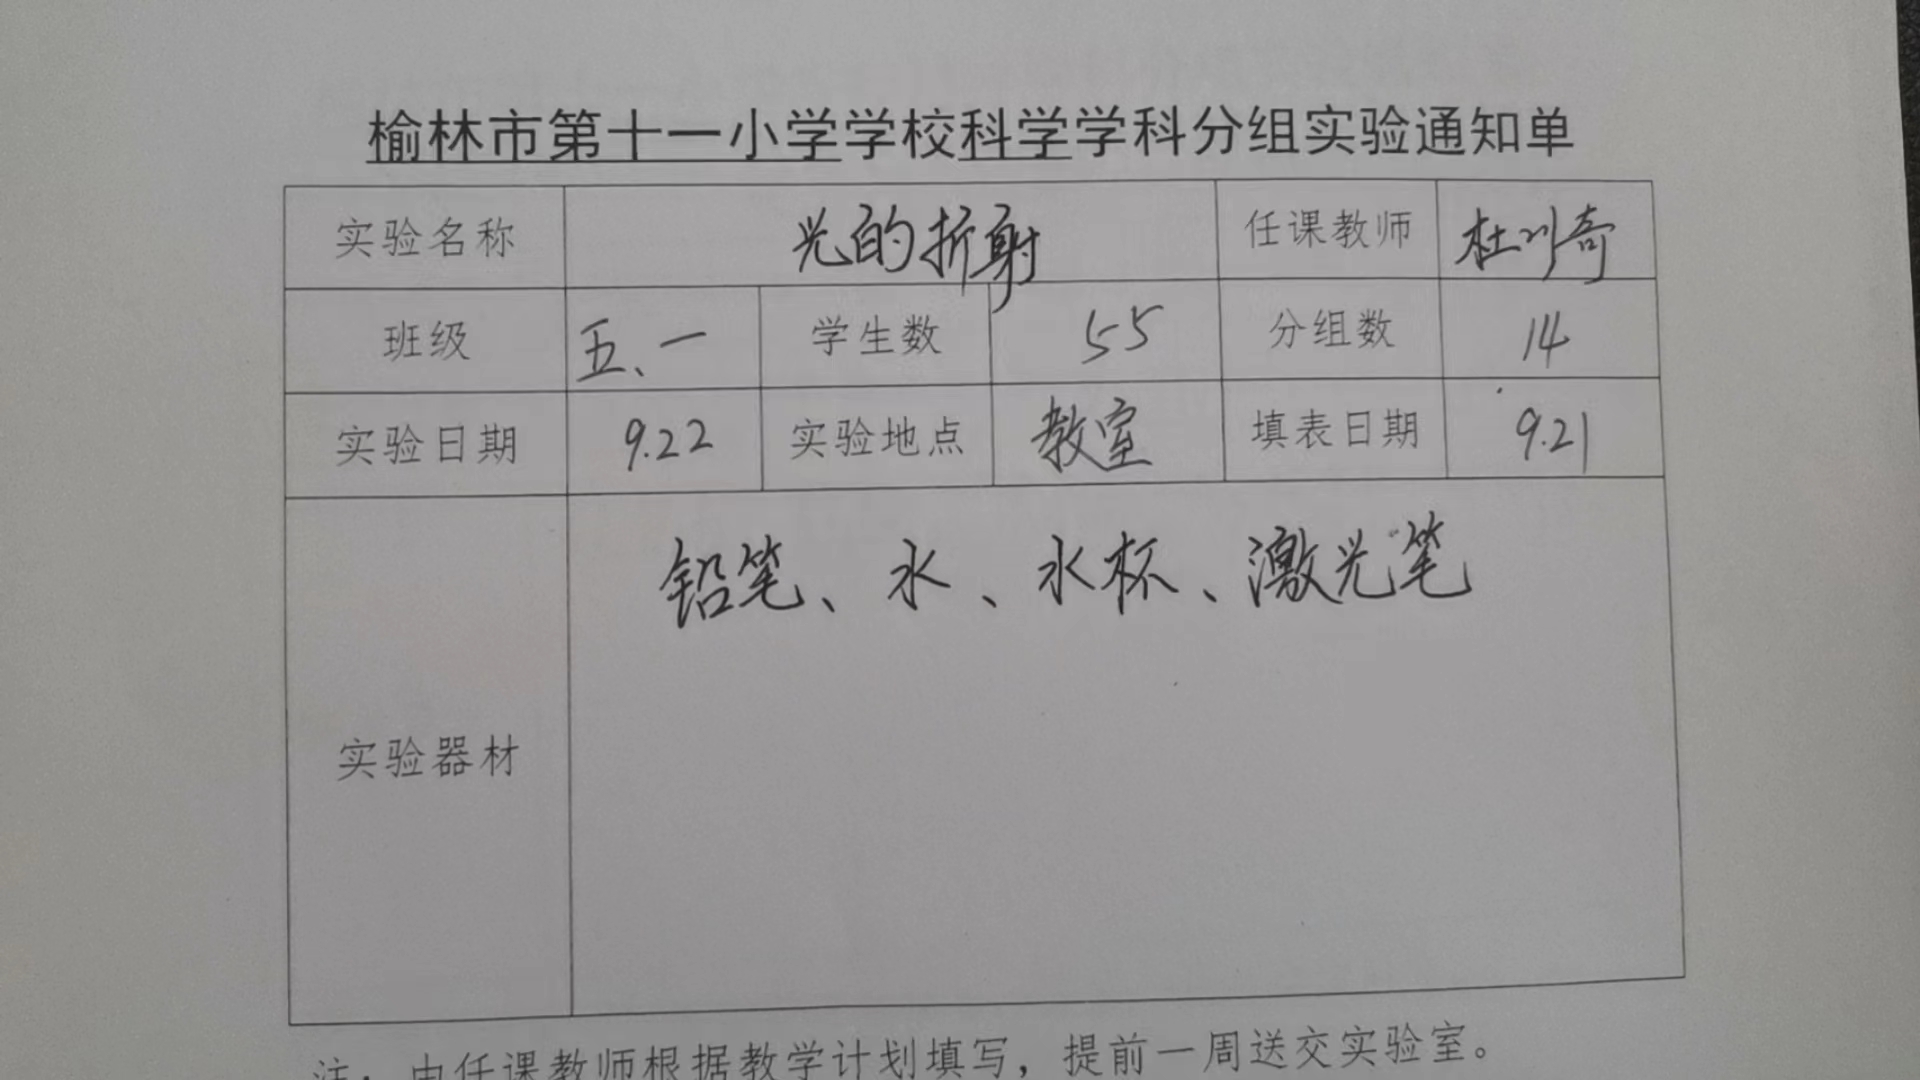 榆林市第十一小学学校科学学科分组实验通知单
实验名称 光的折射 任课教师 杜川奇
班级 五、一 学生数 55 分组数 14
实验日期 9.22 实验地点 教室 填表日期 9.21
铅笔、水、水杯、激光笔
实验器材
注：由任课教师根据教学计划填写，提前一周送交实验室。